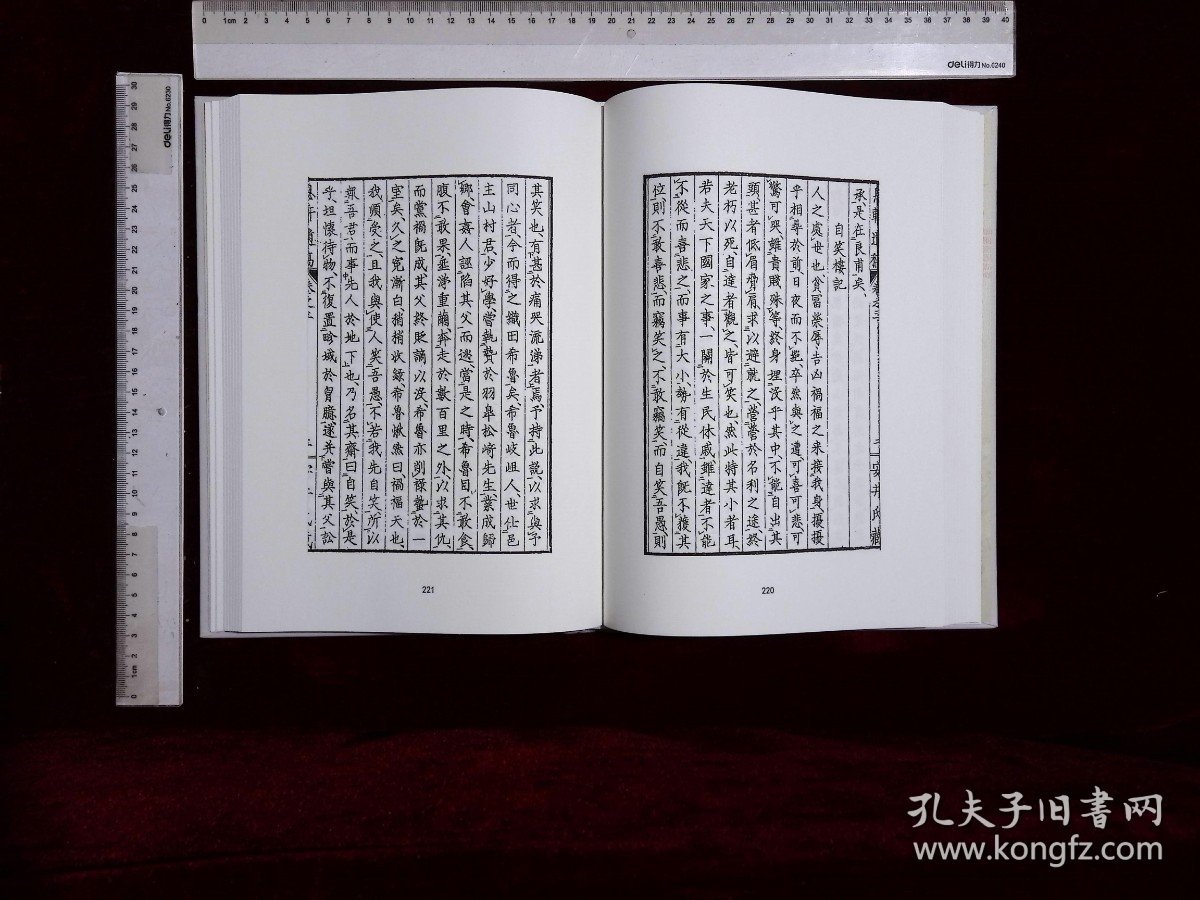 承是在良甫矣
自笑樓記
人之處世也貧冨榮辱吉凶禍福之来接我身攘攘
乎相尋於前日夜而不
卒然與之遭可喜可悲可
驚可哭雖貴賤殊等終身埋没乎其中不能自出其
顕甚者低眉脅肩求以避就之營營於名利之途終
老朽以死自達者觀之皆可笑也然此特其小者耳
若夫天下國家之事一關於生民休戚雖達者不能
不從而喜悲之而事有大小勢有從違我既不獲其
位則不敢喜悲而竊笑之不敢竊笑而自笑吾愚則
安井氏藏
220
其笑也有甚於痛哭流涕者焉予持此説以求與予
同心者今而得之織田希魯矣希魯岐岨人世仕邑
主山村君少好學嘗執贄於羽皐松﨑先生業成歸
鄉會嘉人誣陷其父而逃當是之時希魯目不敢食
腹不敢果垂涕重繭奔走於數百里之外以求其仇
而黨禍既成其父終貶謫以没希魯亦削祿蟄於一
室矣久之寃漸白稍稍收錄希魯愀然曰禍福天也
我順受之且我與使人笑吾愚不若我先自笑所以
報吾君而事先人於地下也乃名其齋曰自笑於是
乎坦懷待物不復置畛域於胷臆遂并嘗與其父訟
221
0 1cm 2 3 4 5 6 7 8 9 10 11 12 13 14 15 16 17 18 19 20 21 22 23 24 25 26 27 28 29 30 31 32 33 34 35 36 37 38 39 40
deli得力 No.6240
deli得力 No.6230
0 1cm 2 3 4 5 6 7 8 9 10 11 12 13 14 15 16 17 18 19 20 21 22 23 24 25 26 27 28 29 30
孔夫子旧书网
www.kongfz.com